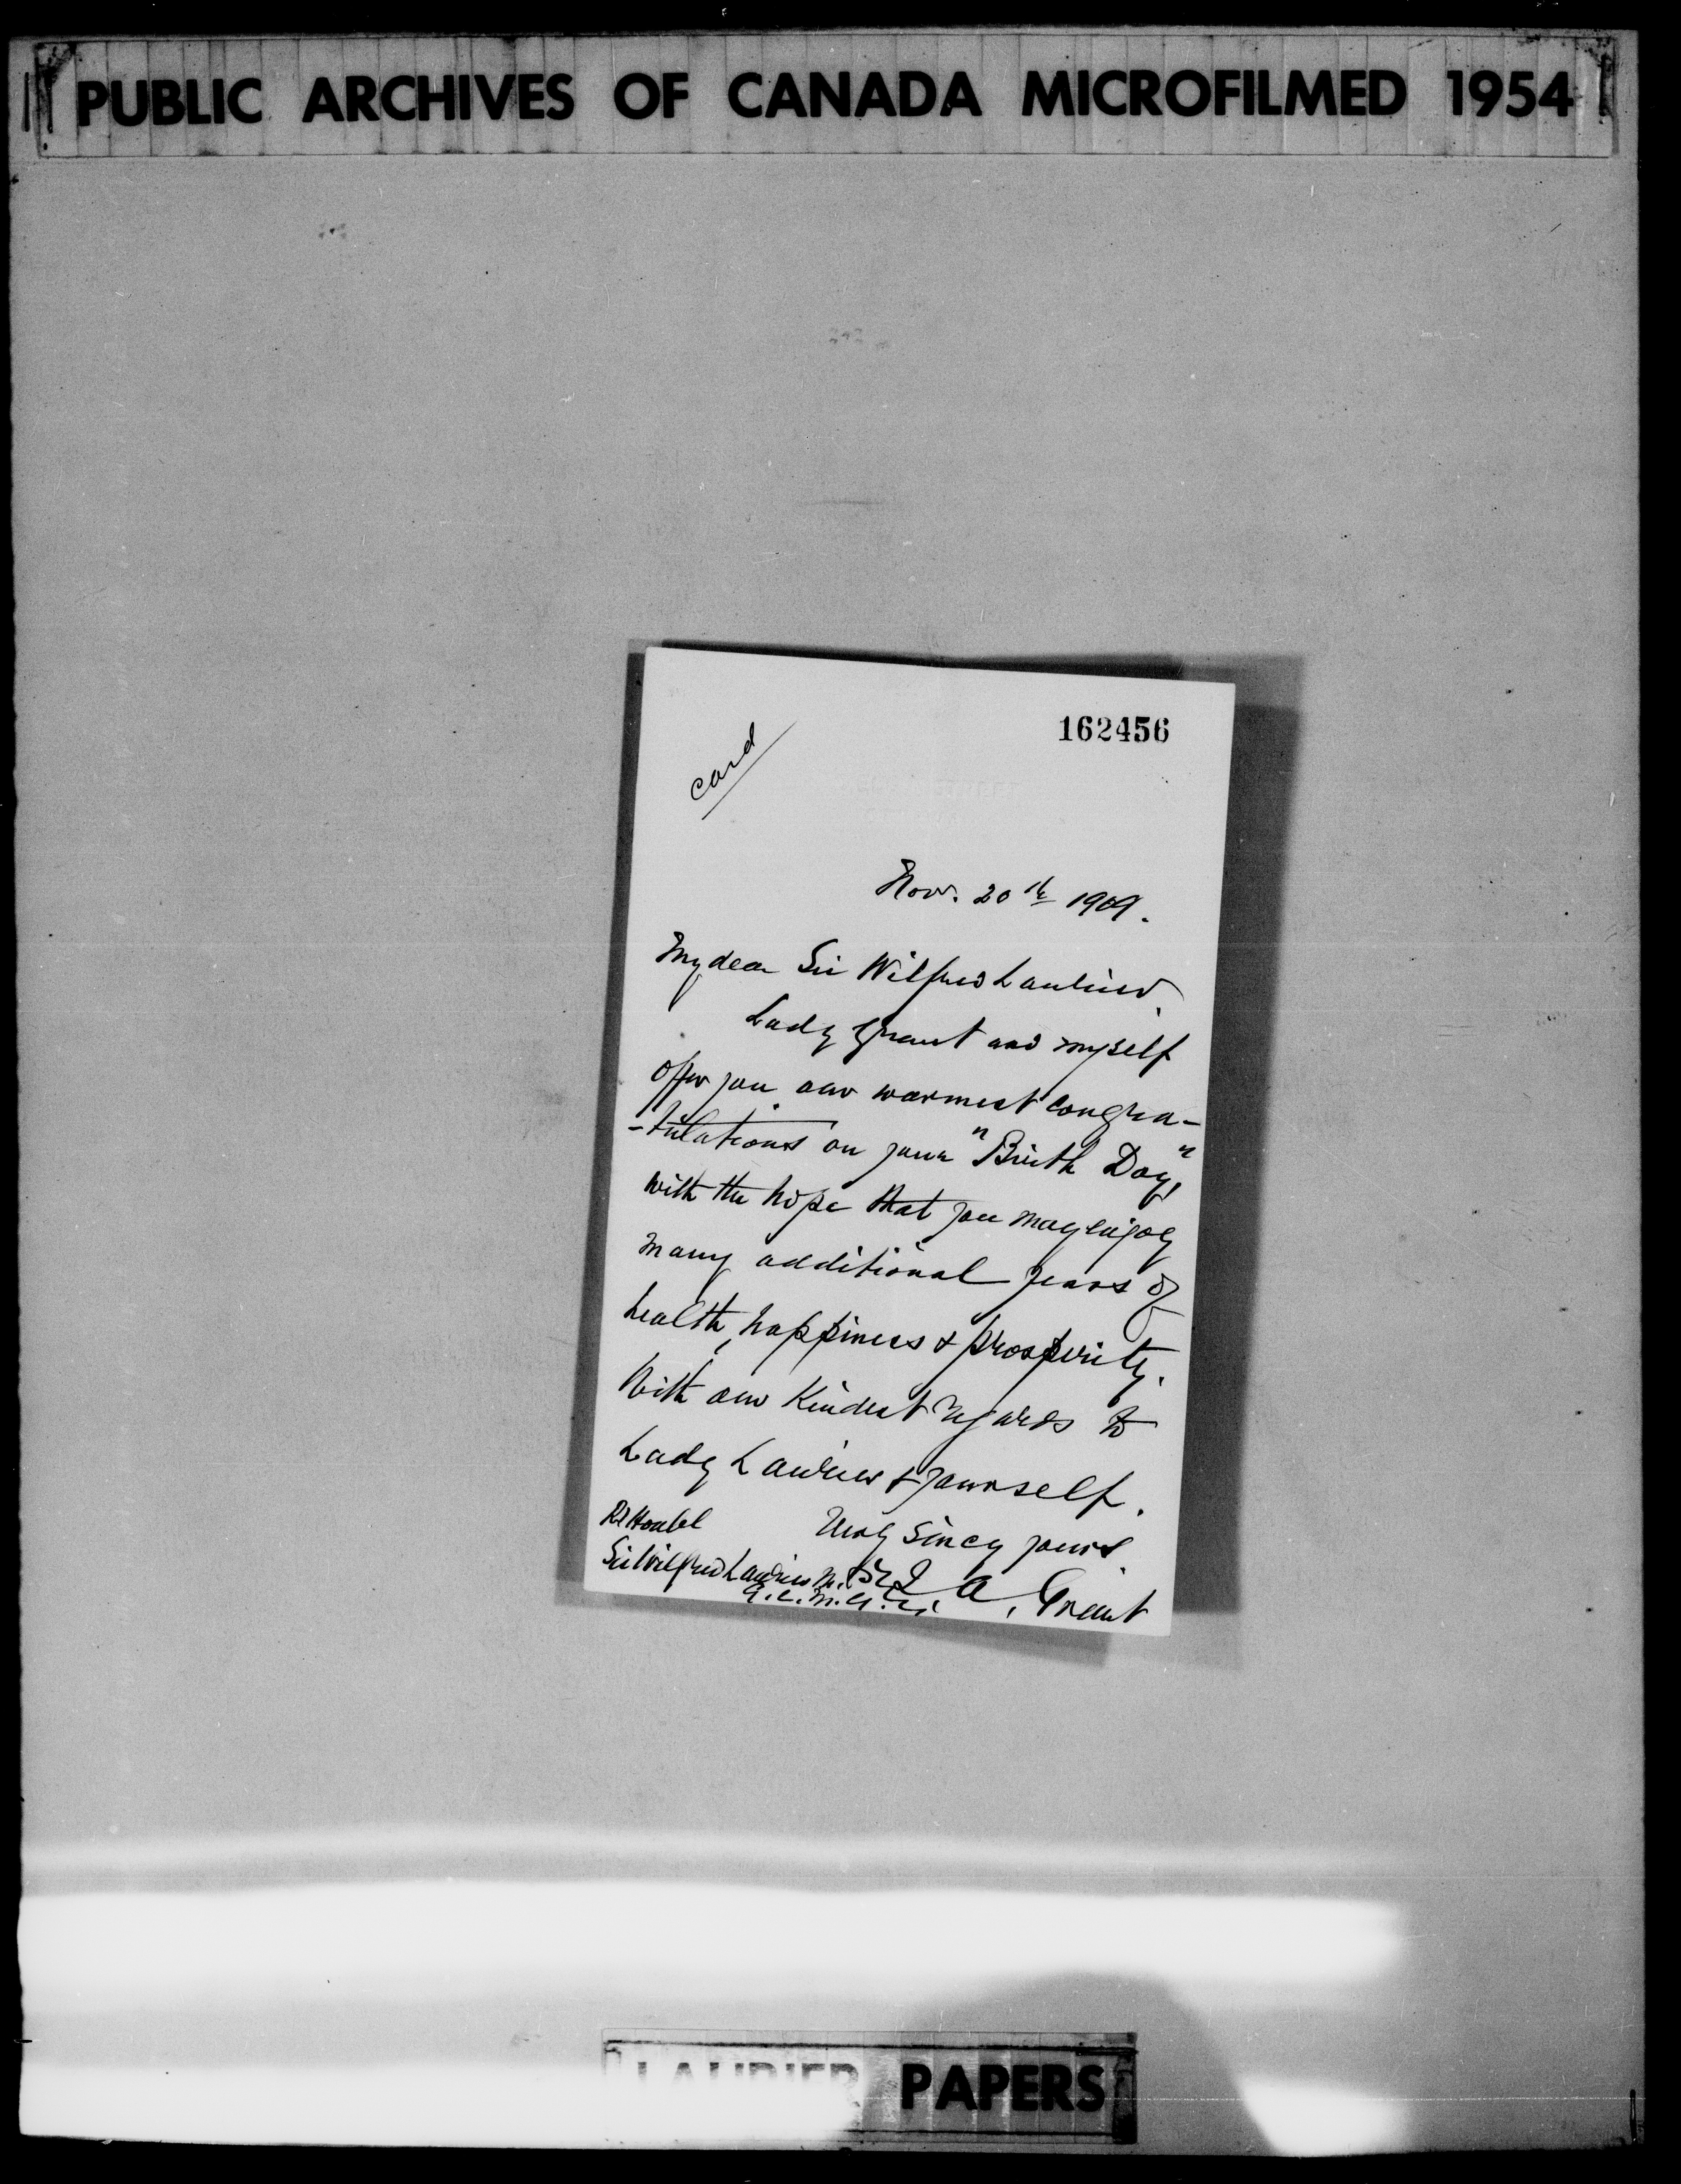 PUBLIC ARCHIVES OF CANADA MICROFILMED 1954
162456
card
Nov. 20th 1909.
My dear Sir Wilfred Laurier,
Lady Grant and myself
offer you our warmest congra-
-tulations on your "Birth Day,"
with the hope that you may enjoy
many additional years of
health, happiness & prosperity.
With our Kindest regards to
Lady Laurier & yourself.
Very Sincy yours
Rt Honbl
Sir Wilfred Laurier
G.C.M.G.
A. Grant
LAURIER PAPERS